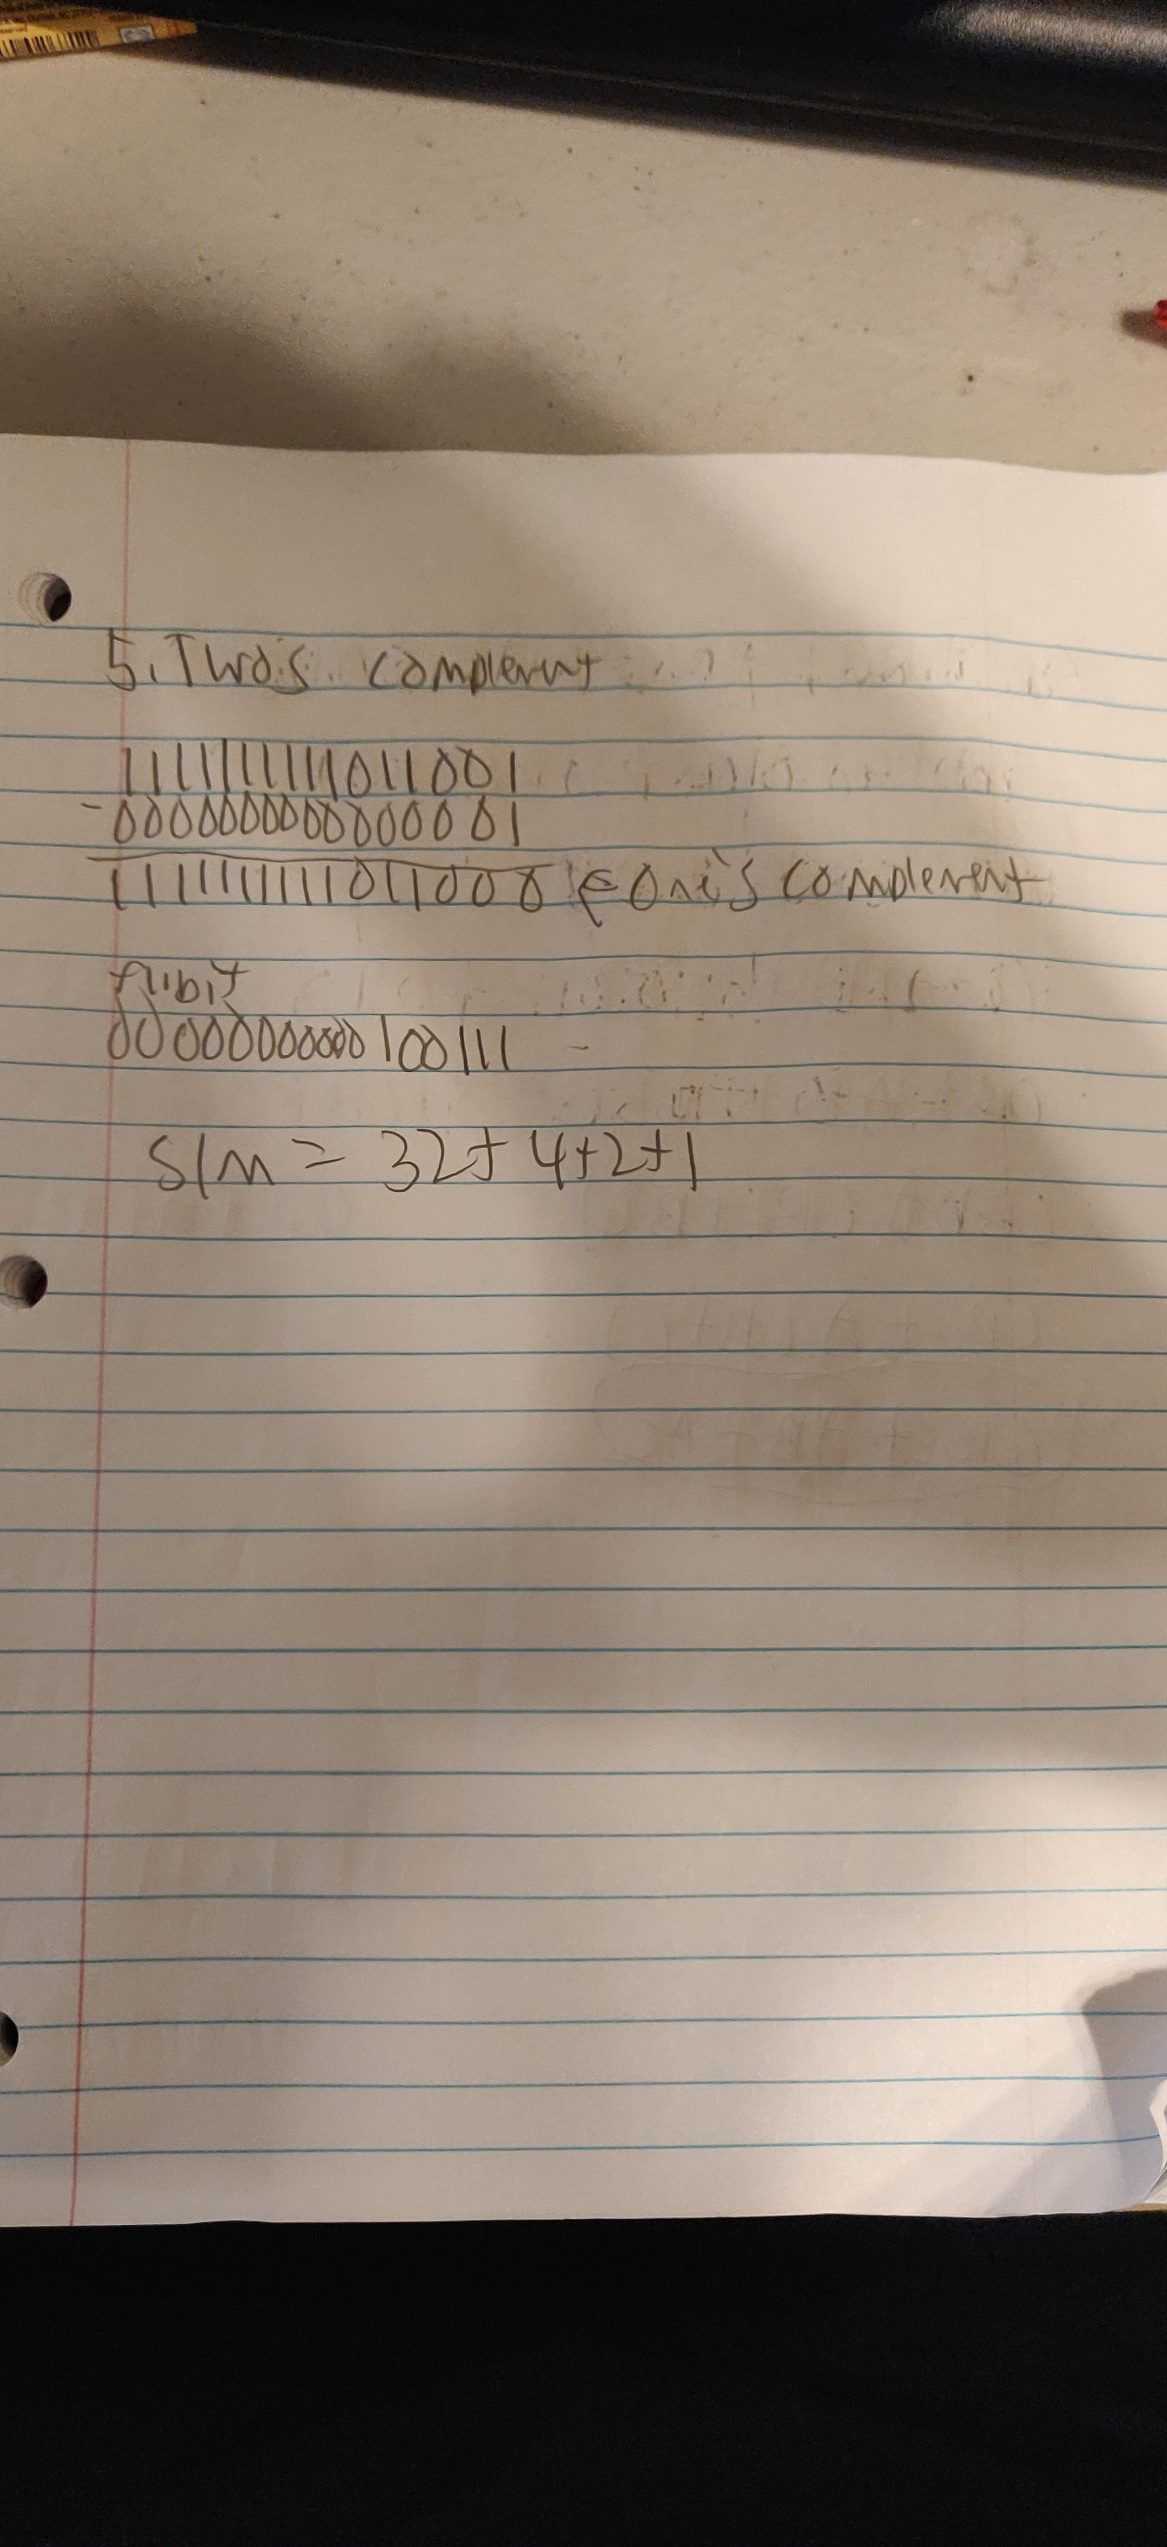 5. Two's complement
1111111111011001
- 0000000000000001
1111111111011000 ← One's complement
flibit
0000000000100111
S/M = 32+4+2+1